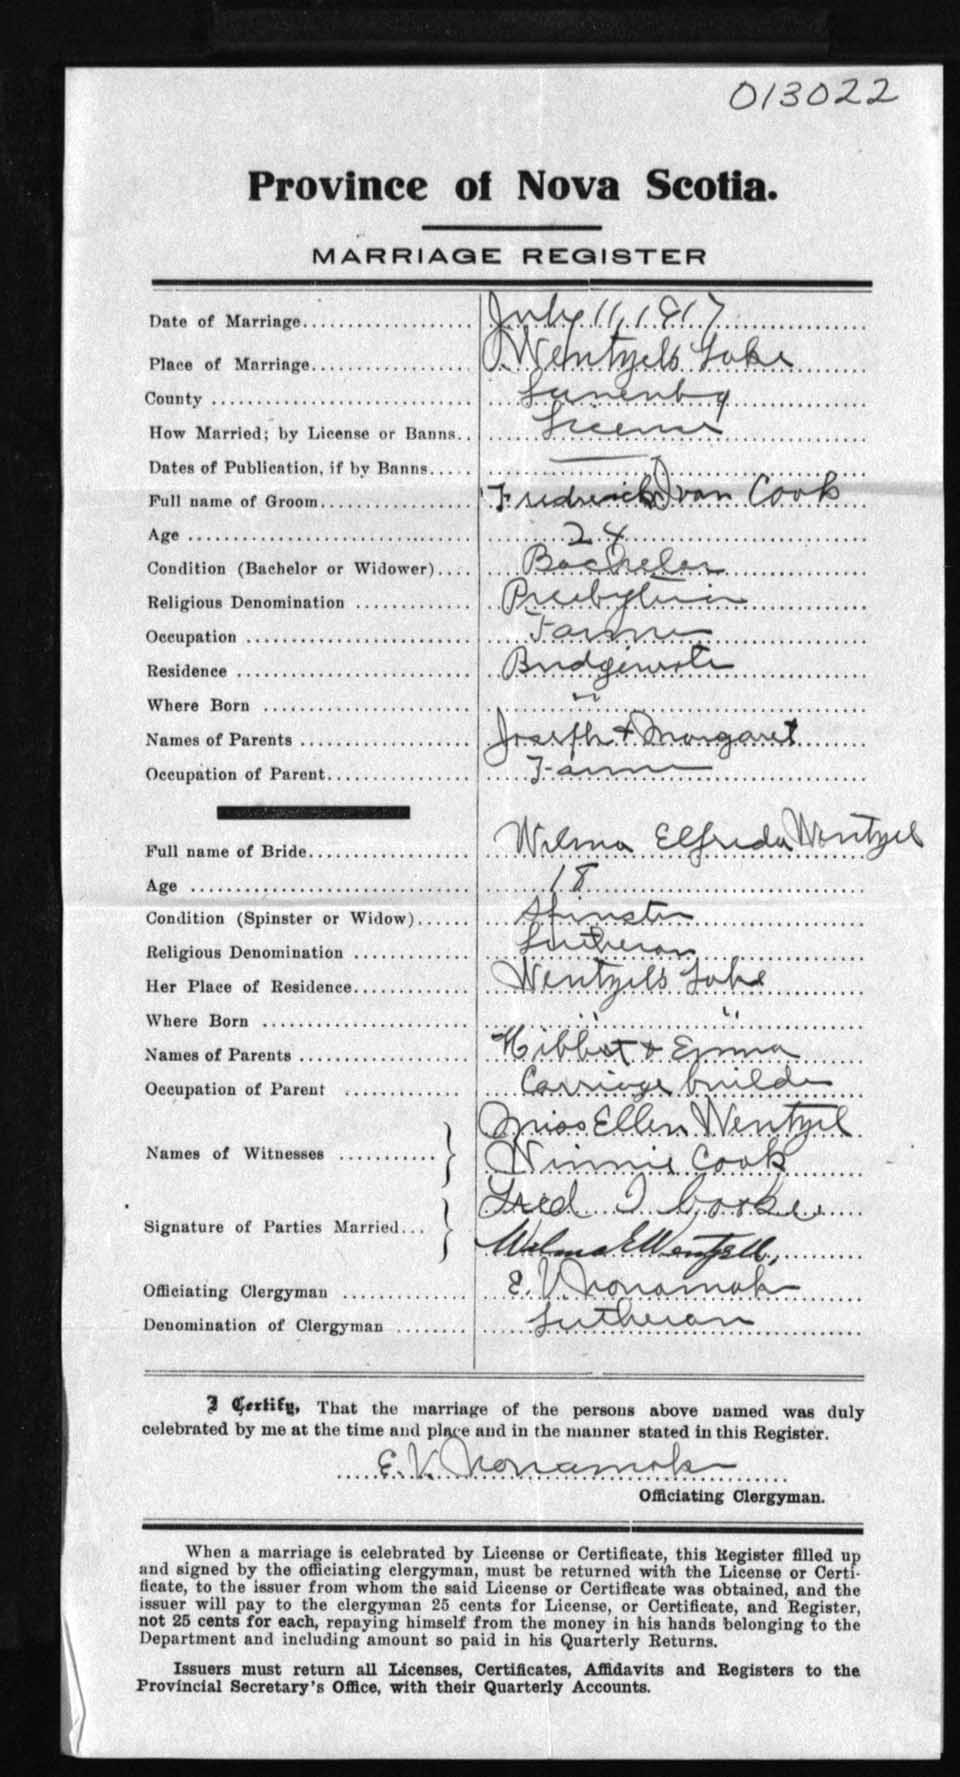 013022
Province of Nova Scotia.
MARRIAGE REGISTER
Date of Marriage................... July 11, 1917
Place of Marriage.................. Wentzels Lake
County .............................. Lunenbg
How Married; by License or Banns.. License
Dates of Publication, if by Banns..... —
Full name of Groom.................. Fredrick Ivan Cook
Age ................................. 24
Condition (Bachelor or Widower).... Bachelor
Religious Denomination ............. Presbyterian
Occupation .......................... Farmer
Residence ........................... Bridgewater
Where Born ........................ "
Names of Parents ................... Joseph & Margaret
Occupation of Parent................ Farmer
Full name of Bride................... Wilma Elfreda Wentzel
Age ................................. 18
Condition (Spinster or Widow)...... Spinster
Religious Denomination ............. Lutheran
Her Place of Residence............. Wentzels Lake
Where Born ........................ " "
Names of Parents ................... Hibbert & Emma
Occupation of Parent ............. Carriage builder
Names of Witnesses ........... } Miss Ellen Wentzel
Winnie Cook
Signature of Parties Married... } Fred I Cooke
Wilma E Wentzell,
Officiating Clergyman .............. E. V. Nonamaker
Denomination of Clergyman ........ Lutheran
I Certify, That the marriage of the persons above named was duly
celebrated by me at the time and place and in the manner stated in this Register.
E. V. Nonamaker
Officiating Clergyman.
When a marriage is celebrated by License or Certificate, this Register filled up
and signed by the officiating clergyman, must be returned with the License or Certi-
ficate, to the issuer from whom the said License or Certificate was obtained, and the
issuer will pay to the clergyman 25 cents for License, or Certificate, and Register,
not 25 cents for each, repaying himself from the money in his hands belonging to the
Department and including amount so paid in his Quarterly Returns.
Issuers must return all Licenses, Certificates, Affidavits and Registers to the
Provincial Secretary's Office, with their Quarterly Accounts.